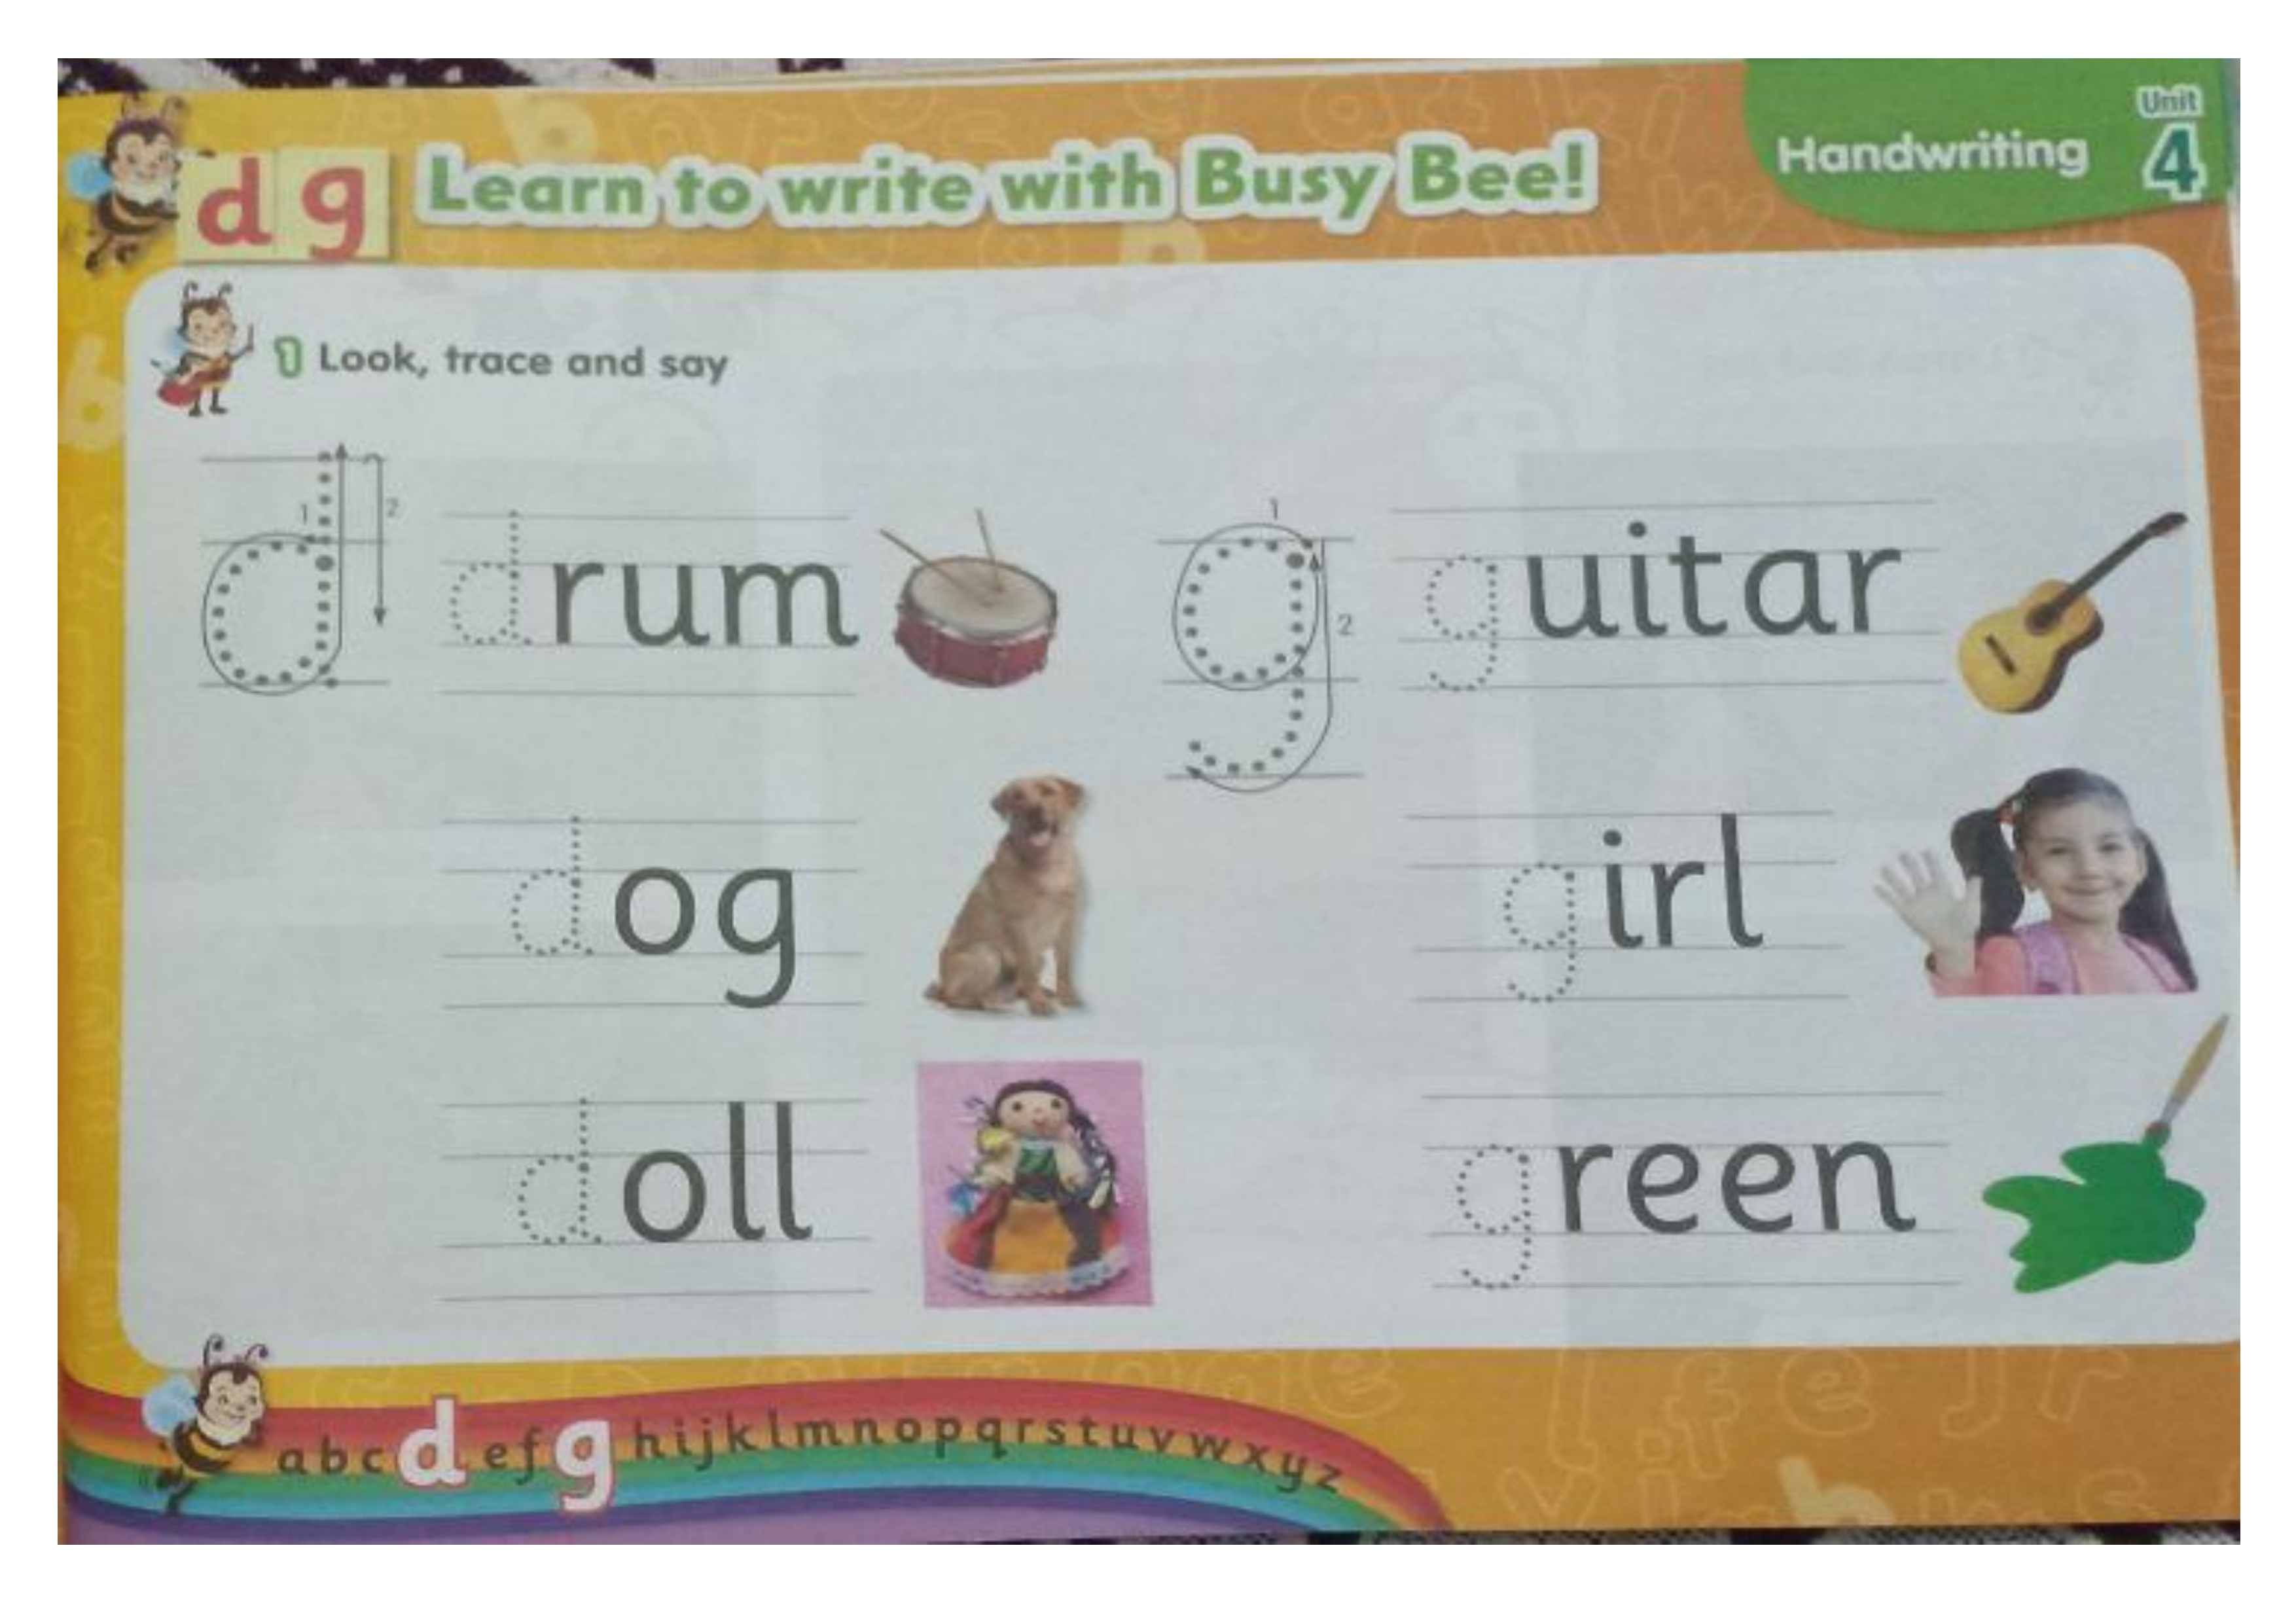 d g Learn to write with Busy Bee!
Handwriting
Unit
4
1 Look, trace and say
1
2
d
drum
dog
doll
1
2
g
guitar
girl
green
a b c d e f g h i j k l m n o p q r s t u v w x y z